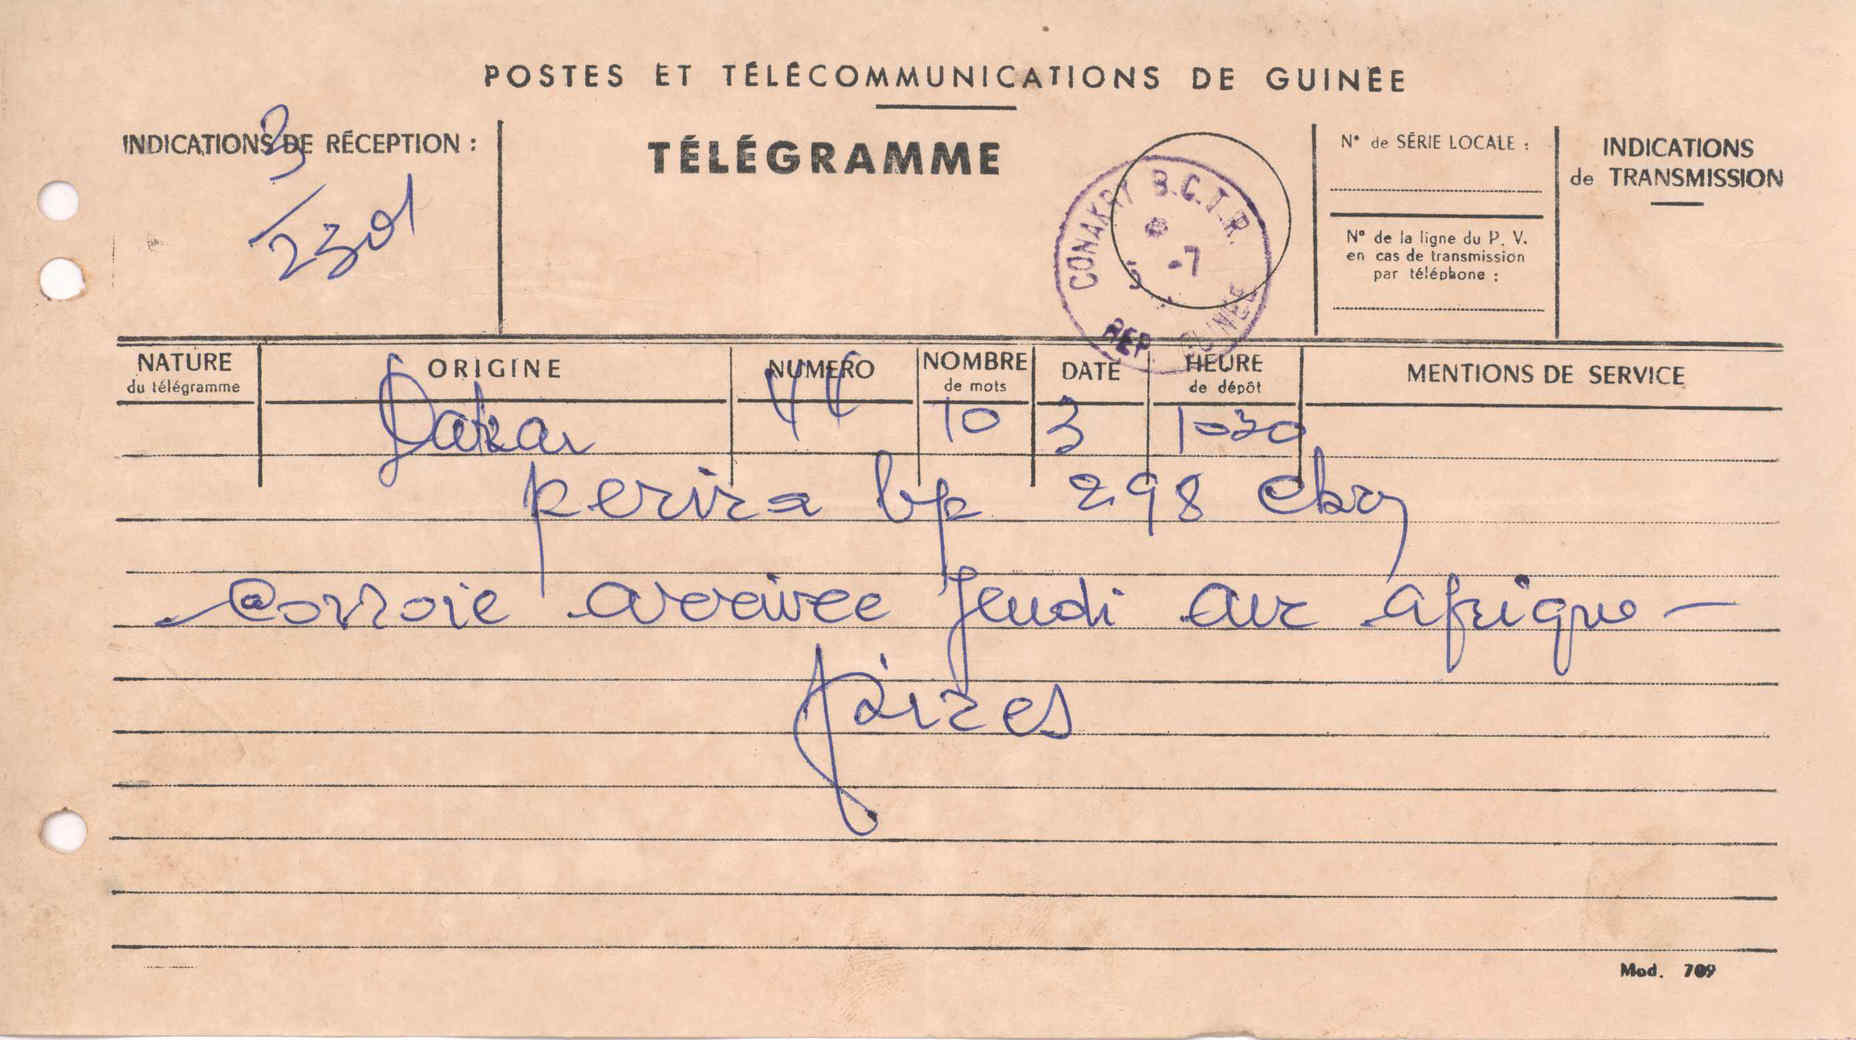 POSTES ET TÉLÉCOMMUNICATIONS DE GUINÉE
INDICATIONS DE RÉCEPTION :
3
2301
TÉLÉGRAMME
CONAKRY B.C.T.R.
-7
REP GUINEE
N° de SÉRIE LOCALE :
N° de la ligne du P. V.
en cas de transmission
par téléphone :
INDICATIONS
de TRANSMISSION
NATURE
du télégramme
ORIGINE
NUMERO
NOMBRE
de mots
DATE
HEURE
de dépôt
MENTIONS DE SERVICE
Dakar 44 10 3 1030
perira bp 298 ckry
arrivee Jeudi air afrique -
pires
Mod. 709